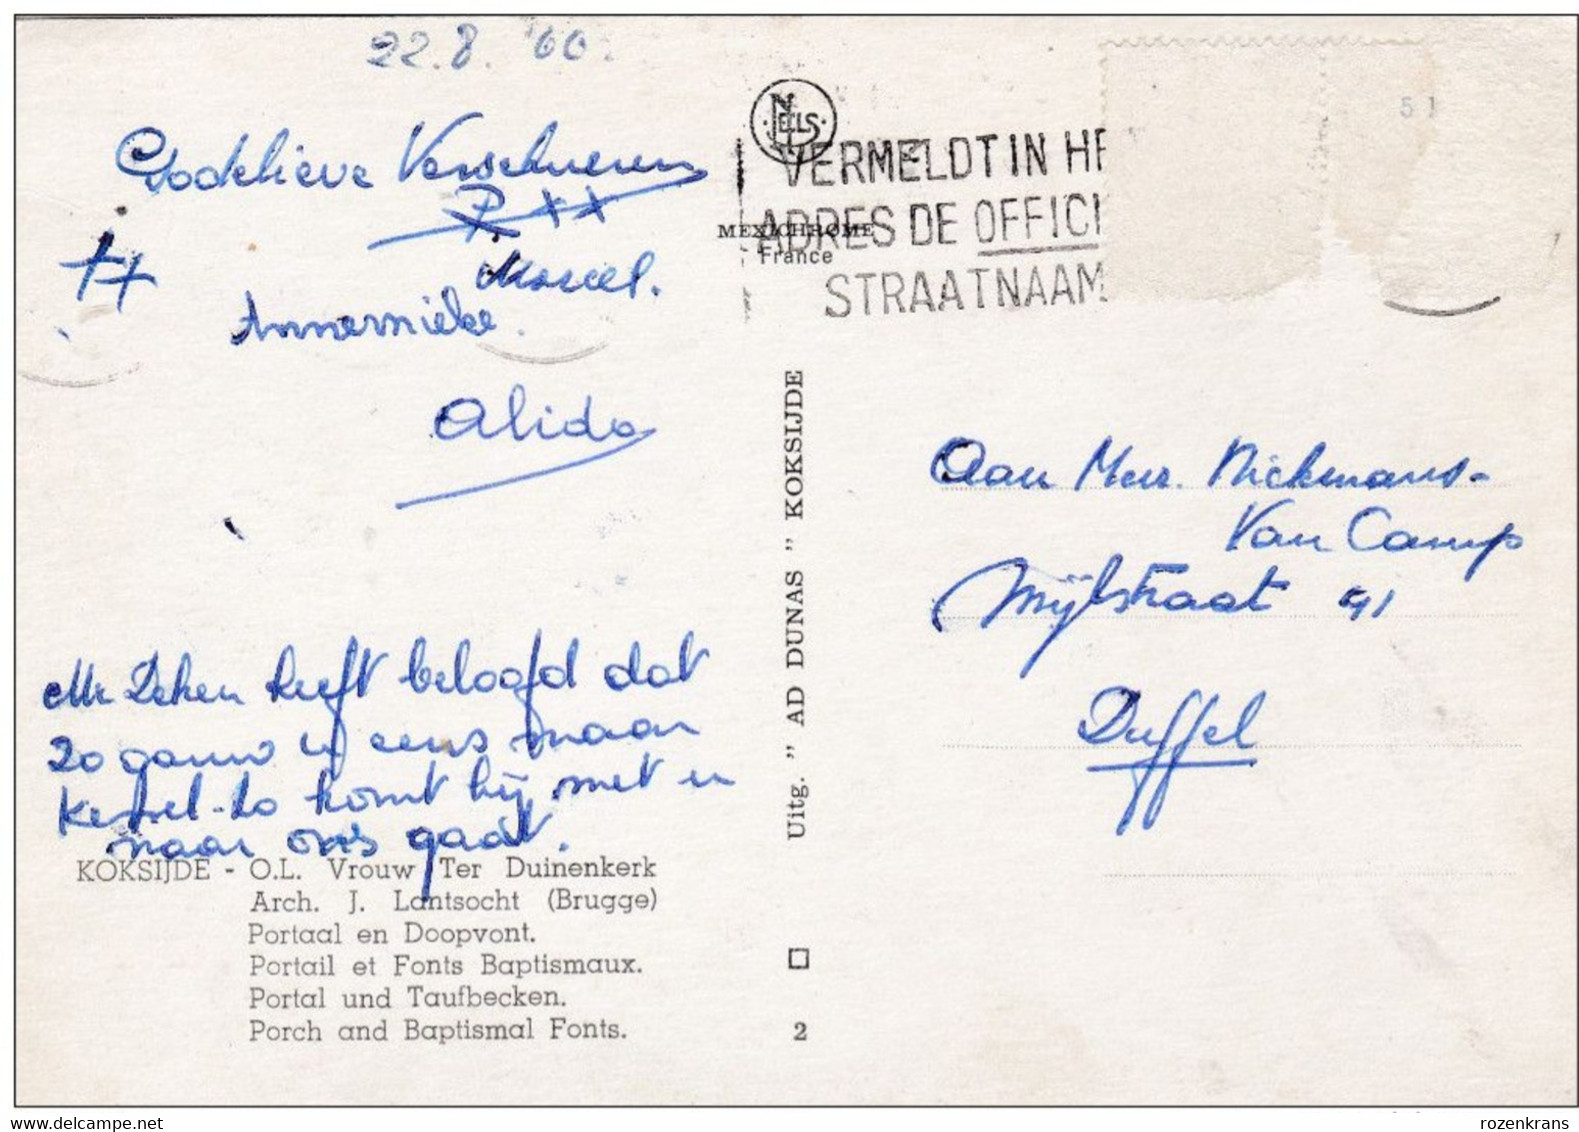 22.8. '60.
Godelieve Verschueren
Marcel.
Annemieke.
Alida
Mr Deken heeft beloofd dat
zo gauw u eens naar
Kessel-Lo komt hij met u
naar ons gaat.
KOKSIJDE - O.L. Vrouw Ter Duinenkerk
Arch. J. Lantsocht (Brugge)
Portaal en Doopvont.
Portail et Fonts Baptismaux.
Portal und Taufbecken.
Porch and Baptismal Fonts.
NELS
MEXICHROME
France
Uitg. " AD DUNAS " KOKSIJDE
2
VERMELDT IN HE
ADRES DE OFFICI
STRAATNAAM
51
Aan Mevr. Nickmans-
Van Camp
Mijlstraat 91
Duffel
rozenkrans